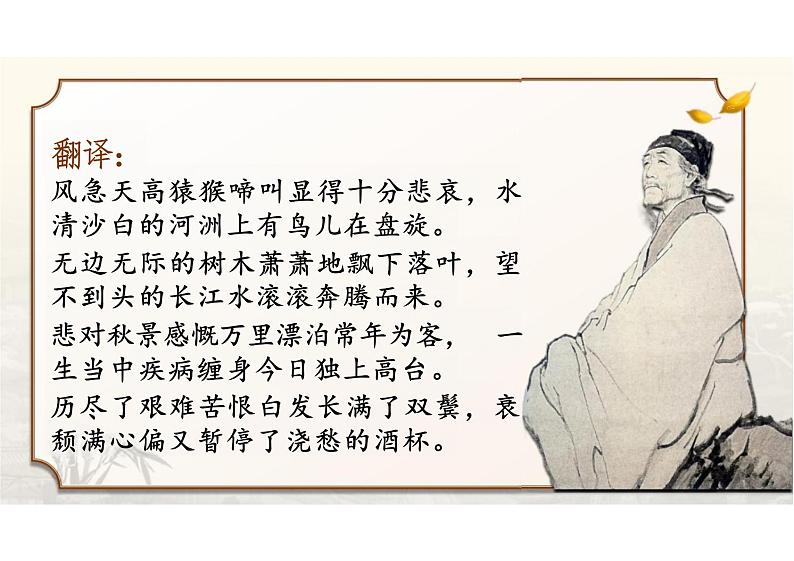 翻译：
风急天高猿猴啼叫显得十分悲哀，水
清沙白的河洲上有鸟儿在盘旋。
无边无际的树木萧萧地飘下落叶，望
不到头的长江水滚滚奔腾而来。
悲对秋景感慨万里漂泊常年为客， 一
生当中疾病缠身今日独上高台。
历尽了艰难苦恨白发长满了双鬓，衰
颓满心偏又暂停了浇愁的酒杯。